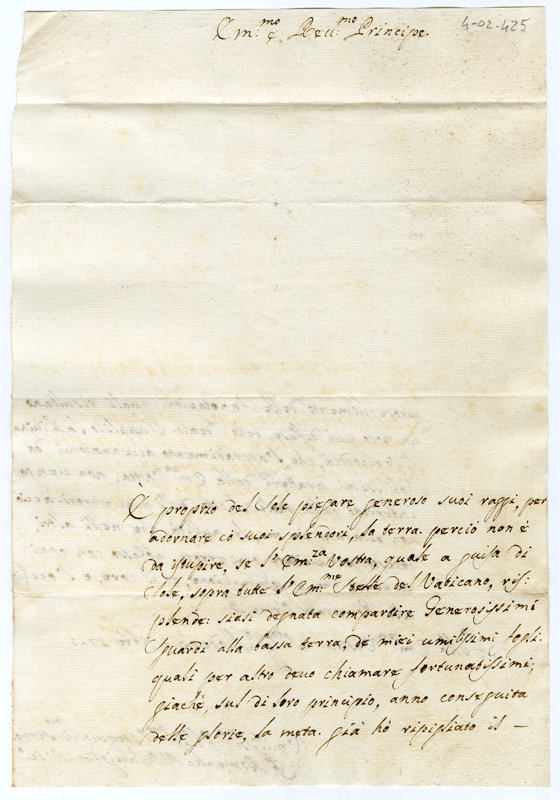 4-02-425
Em.mo e Reu.mo Principe.
È proprio del Sole piegare generoso suoi raggi, per
adornare cò suoi splendori, la terra. perciò non è
da istupire, se l'Em.za Vostra, quale a guisa di
Sole, sopra tutte l'Em.me Stelle del Vaticano, ris:
plende: siasi degnata compartire Generosissimi
sguardi alla bassa terra, de miei umilissimi fogli.
quali per altro devo chiamare fortunatissimi,
giachè, sul di loro principio, anno conseguita
delle glorie, la meta. già hò ripigliato il –